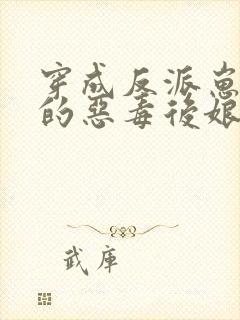 穿成反派崽
的惡毒後娘
武庫